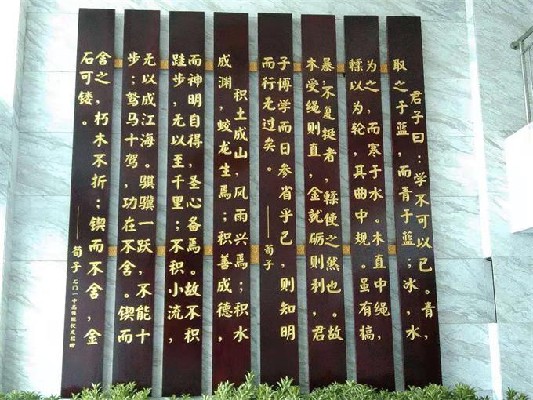 君子曰：学不可以已。青，
取之于蓝，而青于蓝；冰，水
为之，而寒于水。木直中绳，
輮以为轮，其曲中规。虽有槁
暴不复挺者，輮使之然也。故
木受绳则直，金就砺则利，君
子博学而日参省乎己，则知明
而行无过矣。——荀子
积土成山，风雨兴焉；积水
成渊，蛟龙生焉；积善成德，
而神明自得，圣心备焉。故不积
跬步，无以至千里；不积小流，
无以成江海。骐骥一跃，不能十
步；驽马十驾，功在不舍。锲而
舍之，朽木不折；锲而不舍，金
石可镂。——荀子